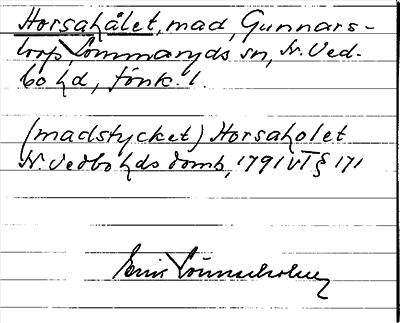 Horsahålet, mad, Gunnars-
torp, Lommaryds sn, N. Ved-
bo hd, Jönk. l.
(madstycket) Horsaholet
N. Vedbo hds domb, 1791 VI § 171